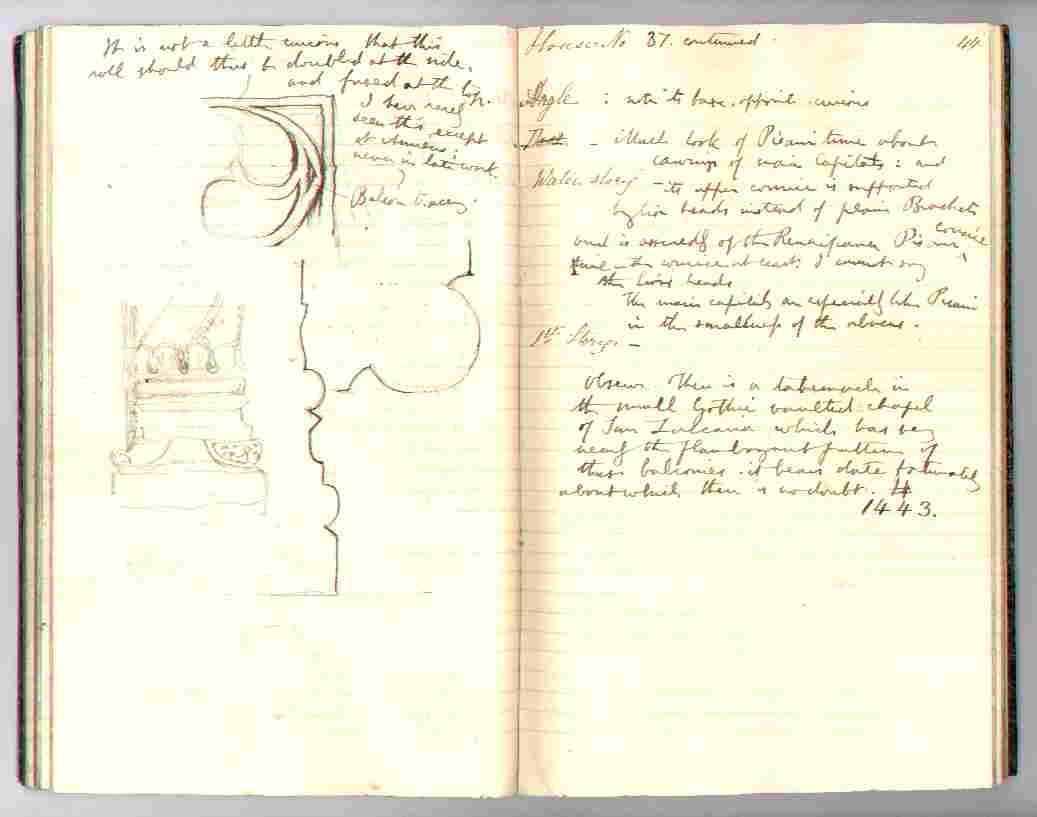 It is not a little curious that this
roll should thus be doubled at the side,
and fused at the top.
I have never
seen this except
at
never in late work.
Balcon tracery.
House No 37. continued.
44
Angle : note its base. opposite. curious
– Much look of Pisani time about
carving of main capitals: and
Water story – its upper cornice is supported
by lion heads instead of plain Brackets
and is assuredly of the Renaissance Pisani
cornice
time – the cornice at least: I cannot say
the lions heads
The main capitals are especially like Pisani
in the smallness of the abacus.
1st Story –
Observe. There is a tabernacle in
the small Gothic vaulted chapel
of San which has very
nearly the flamboyant pattern of
these balconies. it bears date fortunately
about which there is no doubt.
1443.